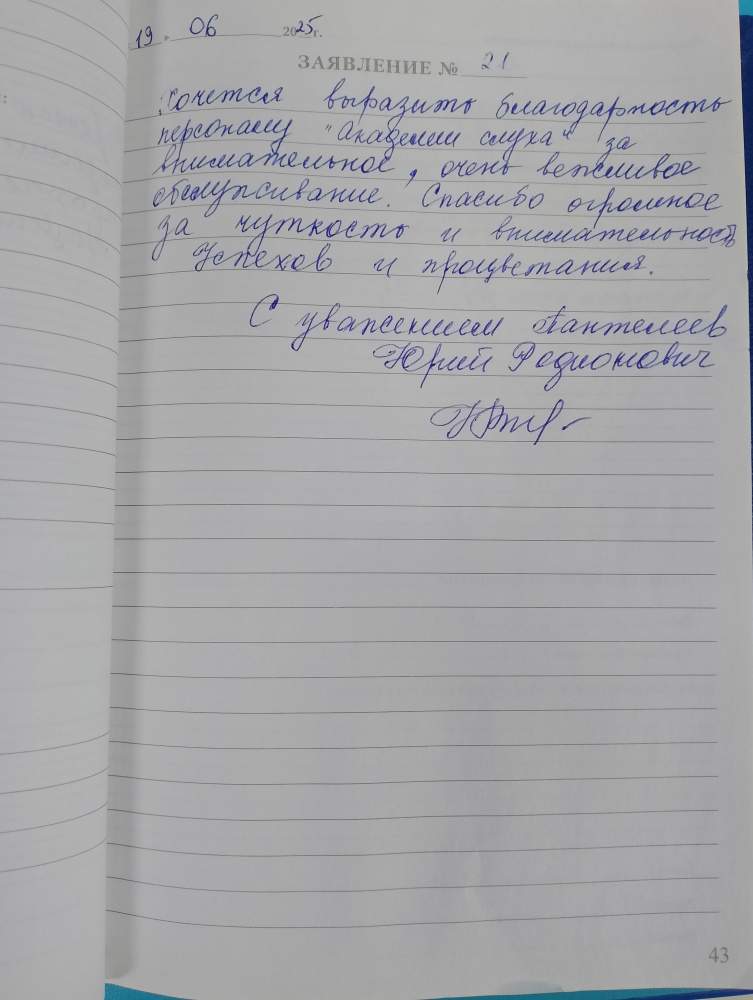 19. 06 2025г.
ЗАЯВЛЕНИЕ № 21
Хочется выразить благодарность
персоналу "Академии слуха" за
внимательное, очень вежливое
обслуживание. Спасибо огромное
за чуткость и внимательность
Успехов и процветания.
С уважением Пантелеев
Юрий Родионович
43